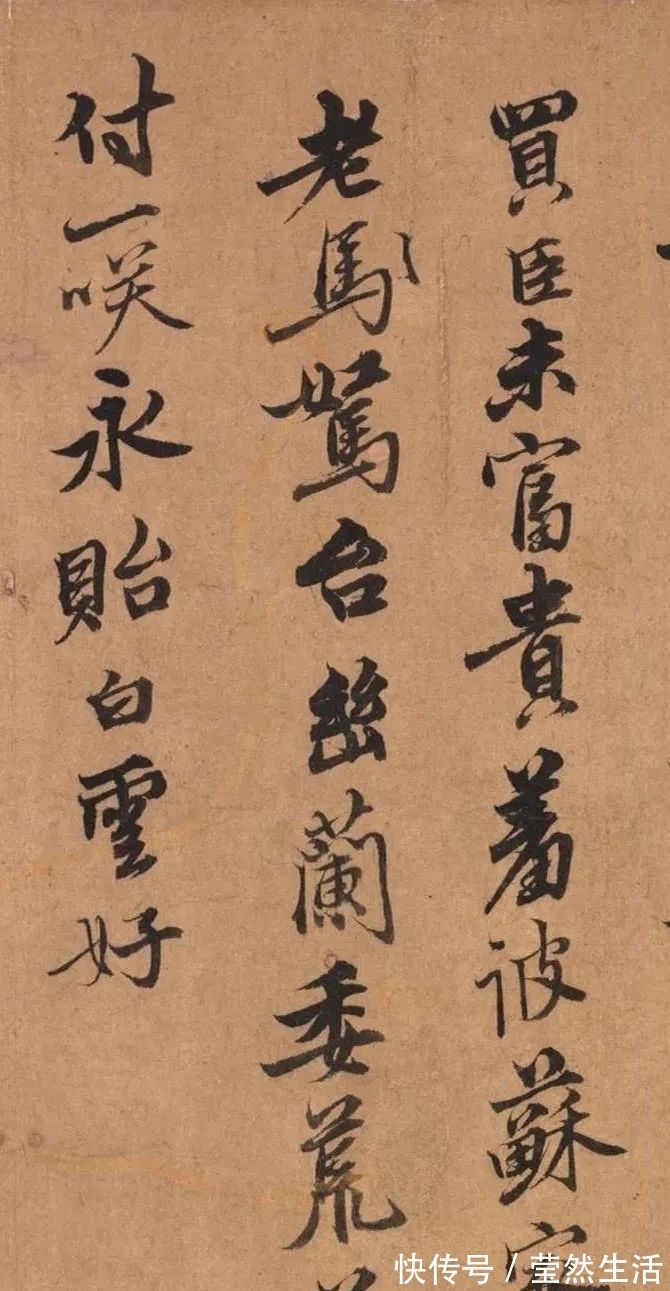 買臣未富貴羞彼蘇
老馬駑台幽蘭委荒
付一咲永貽白雲好
快传号 / 莹然生活